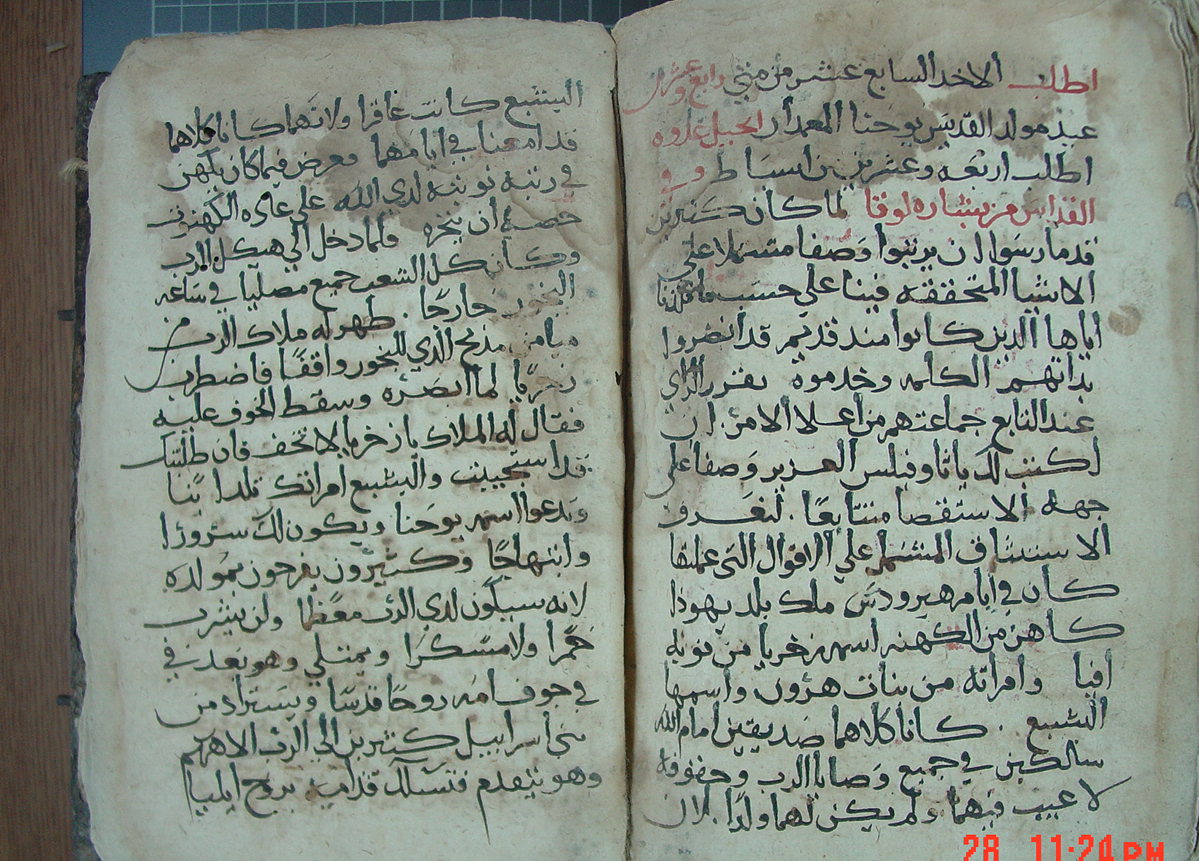 اطلب الاحد السابع عشر من متي رابع وعشرين
عيد مولد القديس يوحنا المعمدان انجيل غدوه
اطلب اربعه وعشرين من
القداس من بشاره لوقا لما كان كثيرين
قد مارسوا ان يرتبوا وصفا مشتملا علي
الاشيا المتحققه فينا علي حسب ما
اياها الدين كانوا مند قديم قد ابصروا
بداتهم الكلمه وخدموه بقرر الراي
عند التابع جماعتهم من اعلا الامر ان
اكتب لك ياثاوفيلس العزيز وصفا علي
جهة الاستقصا متتابعا لتعرف
الاستيثاق المشتمل علي الاقوال التي عملتها
كان في ايام هيرودس ملك بلد يهودا
كاهن من الكهنه اسمه زخريا من نوبة
افيا وامراته من بنات هرون واسمها
اليشبع كانا كلاهما صديقين امام الله
سالكين في جميع وصايا الرب وحقوقه
لا عيب فيهما ولم يكن لهما ولدا لان
اليشبع كانت عاقرا ولانهما كانا كلاهما
قد امعنا في ايامهما فعرض فيما كان يكهن
في رتبة نوبته لدي الله علي عادة الكهنوت
حصه ان يبخر فلما دخل الي هيكل الرب
وكان كل الشعب جميع مصليا في ساعه
البخور خارجا ظهر له ملاك الرب من
ميامن مدبح الذي للبخور واقفا فاضطرب
زخريا لما ابصره وسقط الخوف عليه
فقال له الملاك يا زخريا لا تخف فان طلبتك
قد استجيبت واليشبع امراتك تلد ابنا
وتدعوا اسمه يوحنا ويكون لك سرورا
وابتهاجا وكثيرون يفرحون بمولده
لانه سيكون لدي الرب معظما ولن يشرب
خمرا ولا مسكرا ويمتلي وهو بعد في
في جوف امه روحا قدسا ويسترد من
بني اسراييل كثيرين الي الرب الاههم
وهو يتقدم فتسلك قدامه بروح ايليا
28 11:24 PM